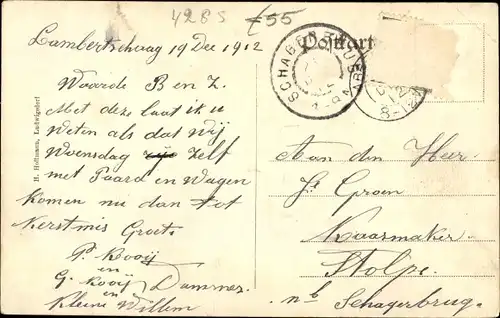 4285 £55
Lambertschaag 19 Dec 1912
Postkart
SCHAGERBRUG
Waarde B en Z.
Met deze laat ik u
Weten als dat Wij
Woensdag zelf
met Paard en Wagen
Komen nu dan tot
Kerstmis Groet.
P. Kooij
en
G. Kooij Dammes
en
Kleine Willem
H. Holtmann, Ludwigsdorf
Aan den Heer
Js Groen
Kaasmaker
Stolpe.
n.b Schagerbrug.